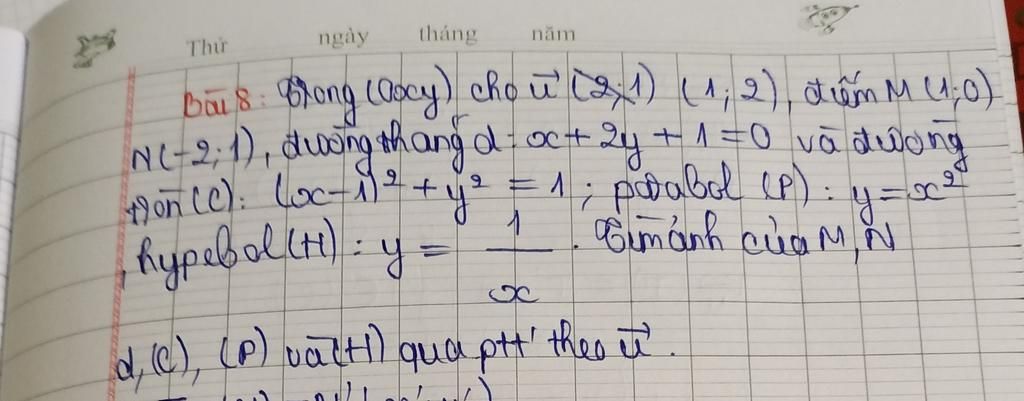 Thứ ngày tháng năm
Bài 8: Trong (Oxy) cho u⃗ (2;1) (1; 2), điểm M (1;0)
N(-2;1), đường thẳng d: x + 2y + 1 = 0 và đường
tròn (C): (x-1)² + y² = 1 ; parabol (P) : y = x²
, hypebol (H) : y = 1/x . Tìm ảnh của M, N
d, (C), (P) và (H) qua ptt' theo u⃗ .